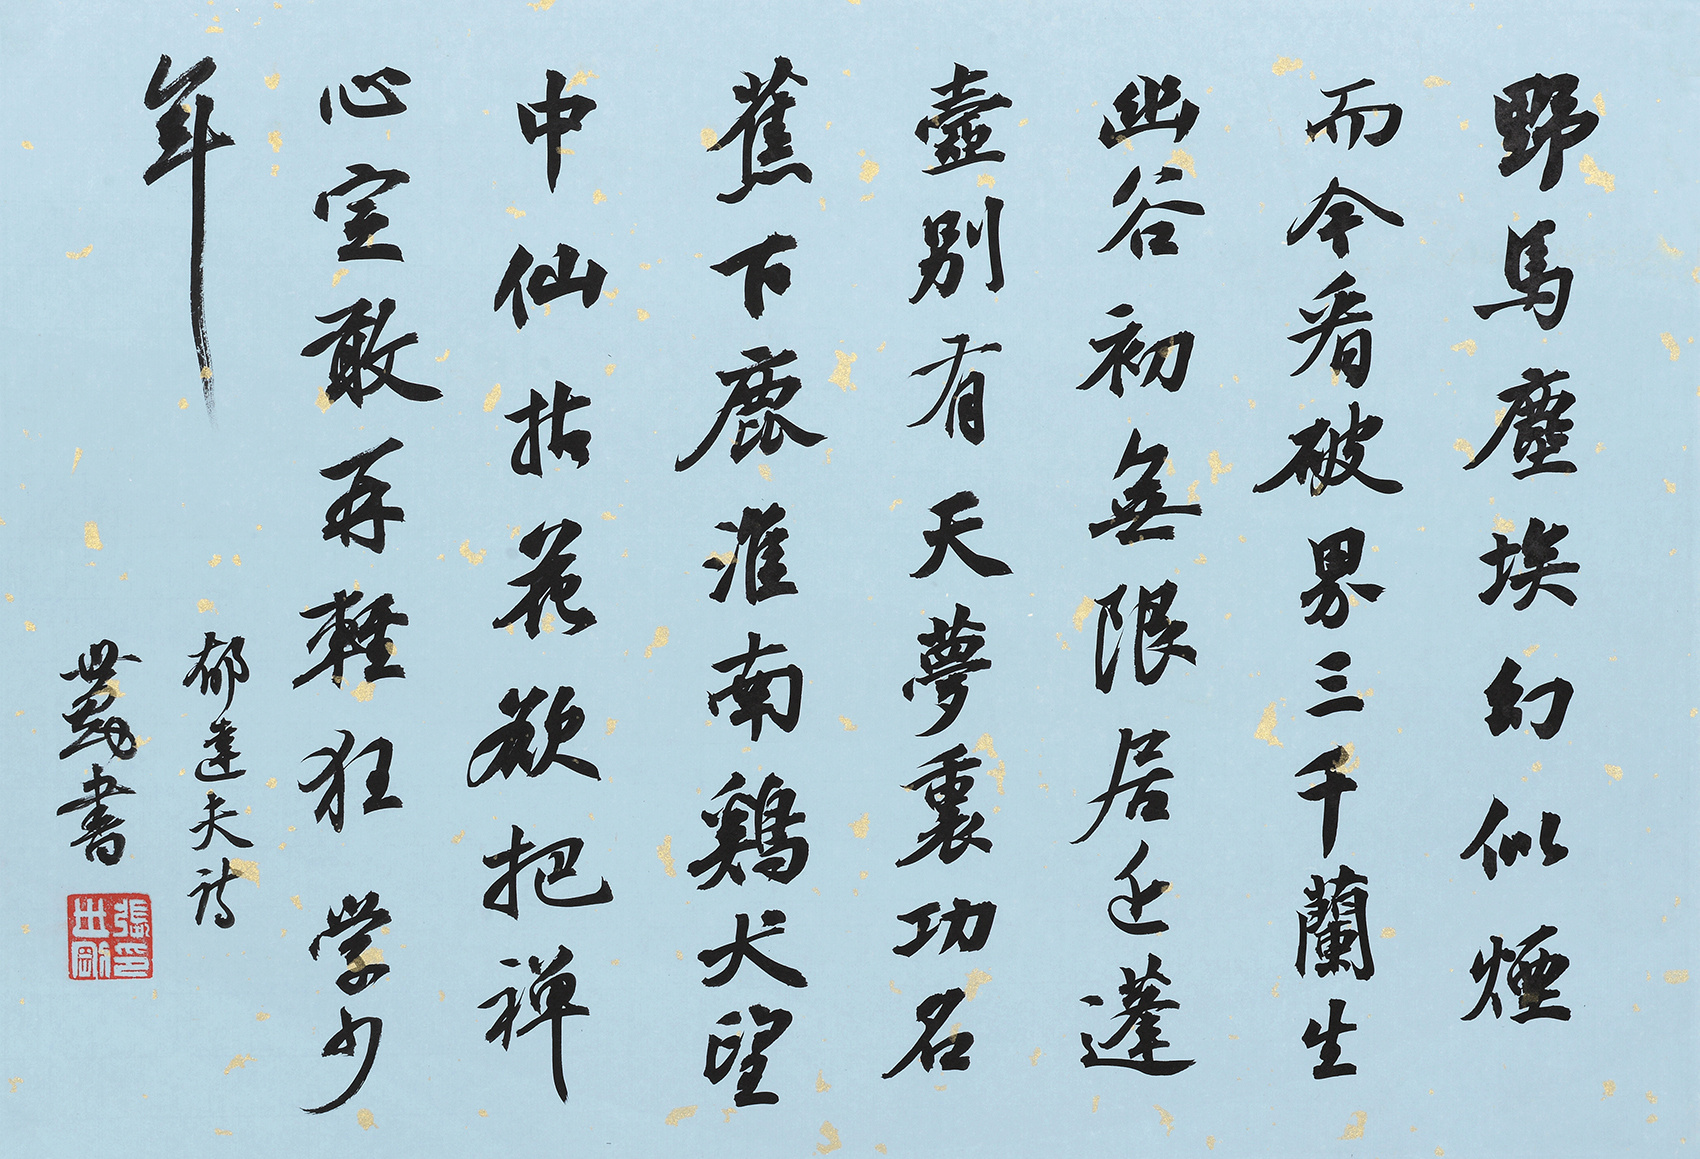 野馬塵埃幻似煙
而今看破界三千蘭生
幽谷初無限居近蓬
壺別有天夢裏功名
蕉下鹿淮南鷄犬望
中仙拈花欲把禅
心定敢再軽狂学少
年
郁達夫詩
世剛書
張世剛印